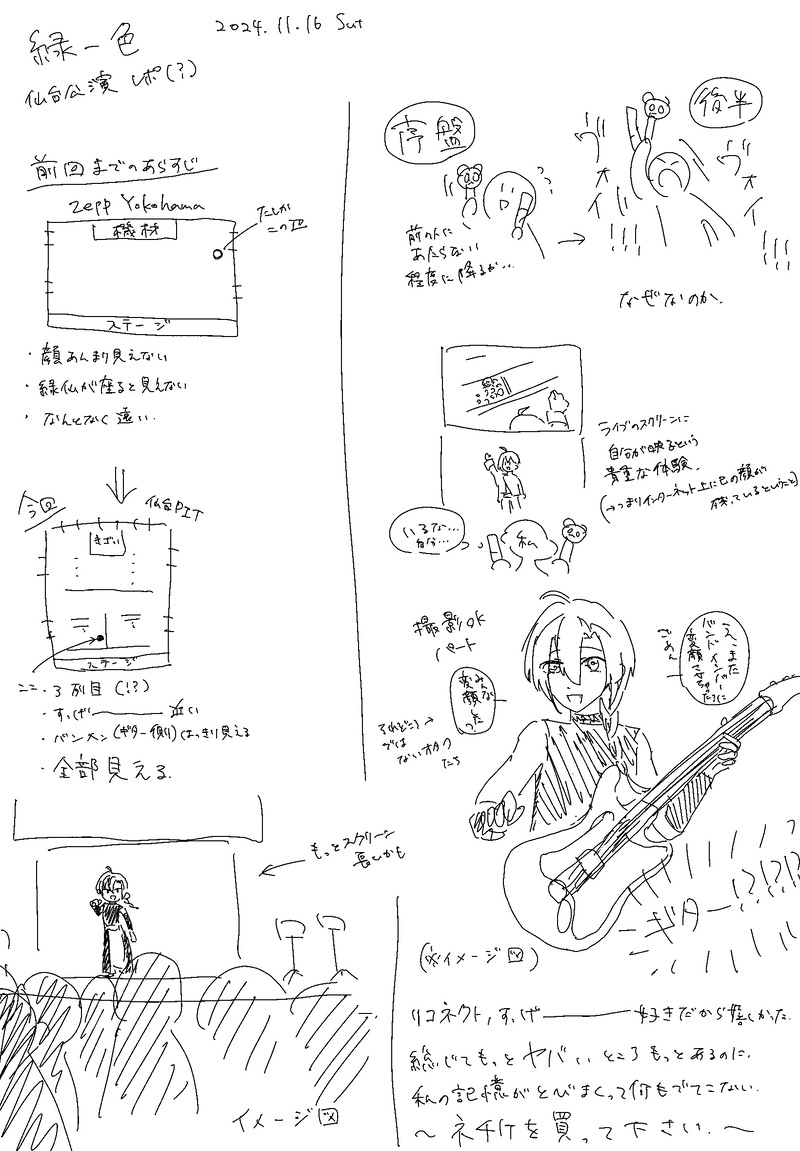 緑一色
2024.11.16 Sut
仙台公演 レポ(?)
前回までのあらすじ
Zepp Yokohama
機材
たしか
この辺
ステージ
・顔あんまり見えない
・緑仙が座ると見えない
・なんとなく遠い.
今回
仙台PIT
きざい
ステージ
ここ・3列目(!?)
・すっげ――近い
・バンメン(ギター側)はっきり見える
・全部見える.
もっとスクリーン
長いかも
イメージ図
序盤
前の人に
あたらない
程度に降るが…
後半
ヴォイ!!!
ヴォイ!!!
なぜなのか.
ライブのスクリーンに
自分が映るという
貴重な体験.
(→つまりインターネット上に己の顔が
残っているということ)
いるな…
自分…
私
撮影OK
パート
みんな
変な顔
だった
それどころ→
では
ないオタク
たち
えっ、また
バンドインしゃーに
変顔させちゃった
ごめん
ギター!?!?!?
(※イメージ図)
リコネクト,すっげ――好きだから嬉しかった.
総じてもっとヤバいところもっとあるのに、
私の記憶がとびまくって何もでてこない.
〜ネチケを買って下さい.〜